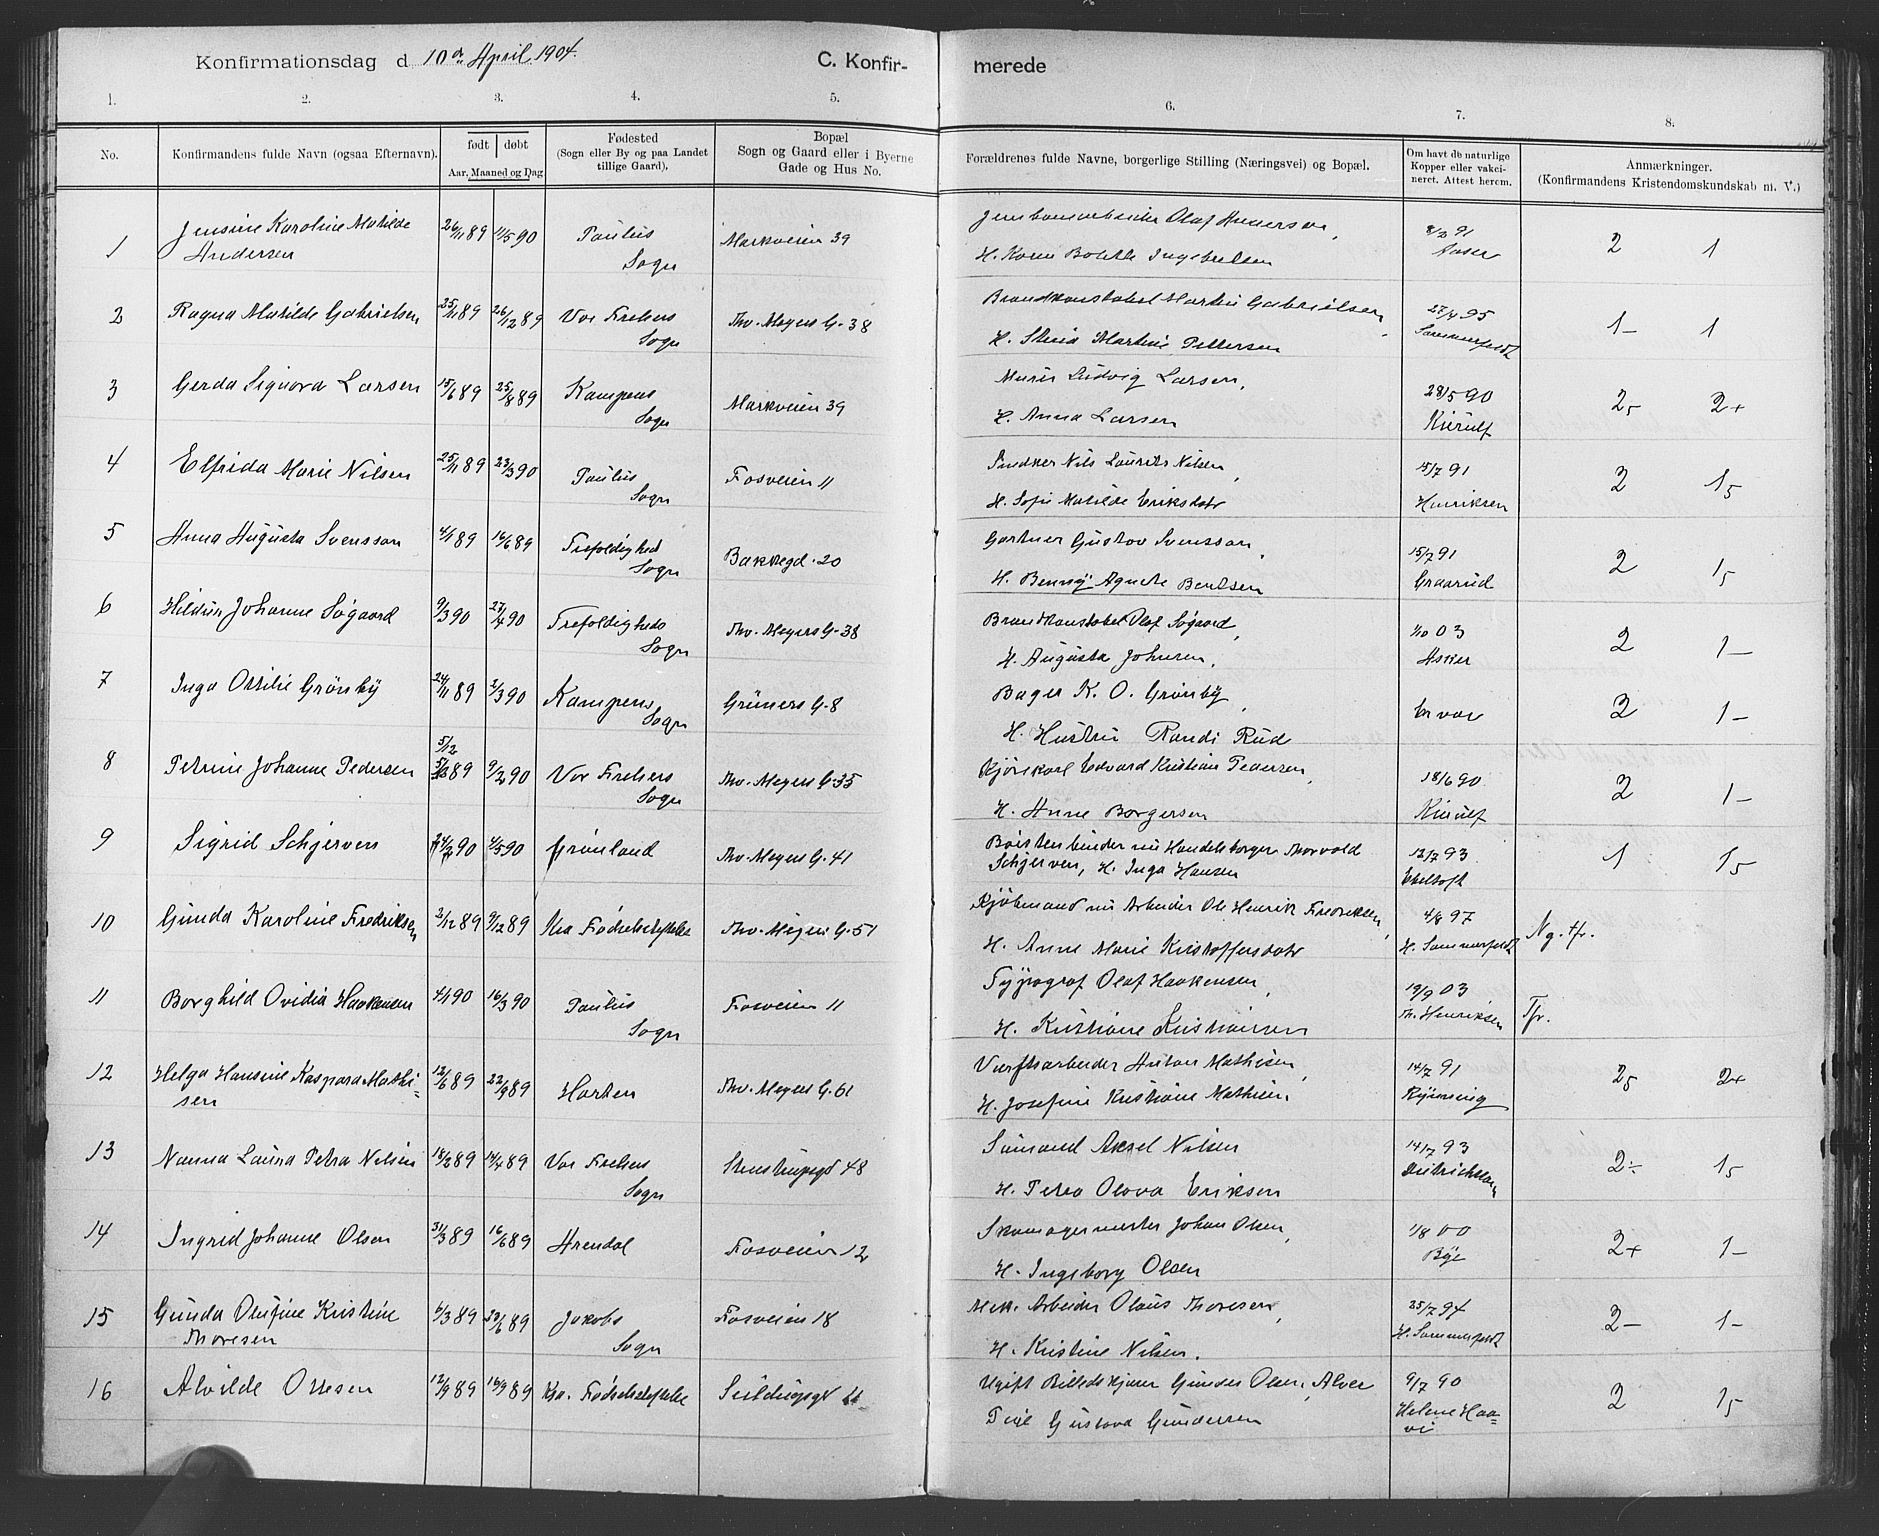 Konfirmationsdag d 10de April 1904. C. Konfir- merede
1. 2. 3. 4. 5. 6. 7. 8.
No. Konfirmandens fulde Navn (ogsaa Efternavn). født døbt Aar, Maaned og Dag Fødested (Sogn eller By og paa Landet tillige Gaard). Bopæl Sogn og Gaard eller i Byerne Gade og Hus No. Forældrenes fulde Navne, borgerlige Stilling (Næringsvei) og Bopæl. Om havt de naturlige Kopper eller vakcineret. Attest herom. Anmærkninger. (Konfirmandens Kristendomskundskab m. V.)
1 Jensine Karoline Matilde 26/11 89 11/5 90 Paulus Markveien 39 Jernbanearbeider Olaf Andersen, 8/2 91 2 1
Andersen Sogn H. Karen Bolette Ingebretsen
2 Ragna Matilde Gabrielsen 25/11 89 26/12 89 Vor Frelsers Thv. Meyers G. 38 Brandkonstabel Martin Gabrielsen, 27/4 95 1- 1
Sogn H. Stina Martine Pettersen Sommerfeldt
3 Gerda Signora Larsen 15/6 89 25/8 89 Kampens Markveien 39 Murer Ludvig Larsen, 28/5 90 25 2+
Sogn H. Anna Larsen Kierulf
4 Elfrida Marie Nilsen 25/11 89 23/3 90 Paulus Fosveien 11 Snedker Nils Laurits Nilsen, 15/7 91 2 15
Sogn H. Sofie Matilde Eriksdatr Henriksen
5 Anna Augusta Svensson 4/1 89 16/6 89 Trefoldighed Bakkegd. 20 Gartner Gustav Svensson, 15/7 91 2 15
Sogn H. Benny Agnete Bentsen Graarud
6 Hildur Johanne Søgaard 9/3 90 27/4 90 Trefoldigheds Thv. Meyers G. 38 Brandkonstabel Olaf Søgaard, 1/10 03 2 1-
Sogn H. Augusta Johnsen, Asker
7 Inga Ottilie Grønby 24/11 89 2/3 90 Kampens Grüners G. 8 Bager K. O. Grønby, 2 1-
Sogn H. Hustru Randi Rud
8 Petrine Johanne Pedersen 5/12 89 9/2 90 Vor Frelsers Thv. Meyers G. 35 Kjørekarl Edvard Kristian Pedersen, 18/6 90 2 1-
Sogn H. Anne Borgersen Kierulf
9 Sigrid Schjerven 24/2 90 4/5 90 Grønland Thv. Meyers G. 41 Børstenbinder nu Handelsborger Thorvald 12/7 93 1 15
Schjerven, H. Inga Hansen Ebeltoft
10 Gunda Karoline Fredriksen 2/12 89 9/12 89 Kra Fødselsstiftelse Thv. Meyers G. 51 Kjøbmand nu Arbeider Ole Henrik Fredriksen, 4/8 97 Ng. tfr.
H. Anne Marie Kristoffersdatr H. Sommerfeldt
11 Borghild Ovidia Haakensen 4/1 90 16/3 90 Paulus Fosveien 11 Typograf Olaf Haakensen, 19/9 03 Tfr.
Sogn H. Kristiane Kristiansen Th. Henriksen
12 Helga Hansine Kaspara Mathi= 12/6 89 22/9 89 Horten Thv. Meyers G. 61 Værftsarbeider Anton Mathisen, 14/7 91 25 2+
sen H. Josefine Kristiane Mathisen,
13 Nanna Laura Petra Nilsen 18/2 89 14/4 89 Vor Frelsers Steenstrupsgt 48 Sømand Aksel Nilsen 14/7 93 2- 15
Sogn H. Petra Olava Eriksen Dietrichson
14 Ingrid Johanne Olsen 31/3 89 16/6 89 Arendal Fosveien 12 Skomagermester Johan Olsen, 1/8 00 2+ 1-
H. Ingeborg Olsen Bye
15 Gunda Olufine Kristine 6/3 89 23/6 89 Jakobs Fosveien 18 Mek. Arbeider Olaus Thoresen, 25/7 94 2- 1-
Thoresen Sogn H. Kristine Nilsen. H. Sommerfeldt
16 Alvilde Ottesen 12/9 89 16/9 89 Kra. Fødselsstiftelse Seildugsgt 11 Ugift Billedskjærer Gunder Olsen, Alver 9/7 90 2 15
Pige Gustava Gundersen Helene Haa=
vi